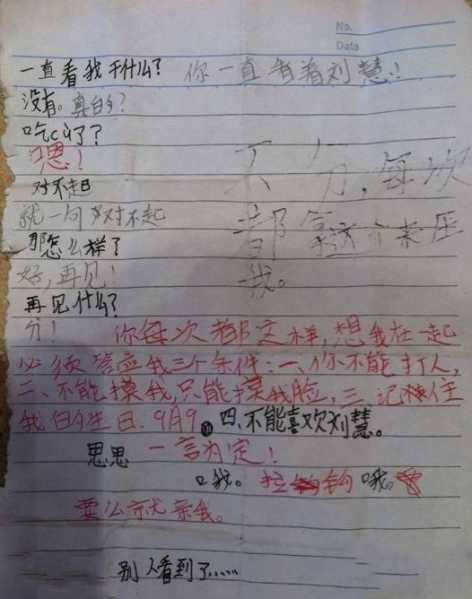 No.
Data
一直看我干什么? 你一直看着刘慧!
没有。真的?
吃c订了?
嗯!
对不起
就一句对不起
不分,每次
那怎么样了
都拿这个来压
好,再见!
我。
再见什么?
分! 你每次都这样,想我在一起
必须答应我三个条件:一、你不能打人,
二、不能摸我,只能摸我脸,三、记住
我的生日.9月9 四、不能喜欢刘慧。
思思 一言为定!
口我。拉钩哦。
要么就亲我。
别人看到了......